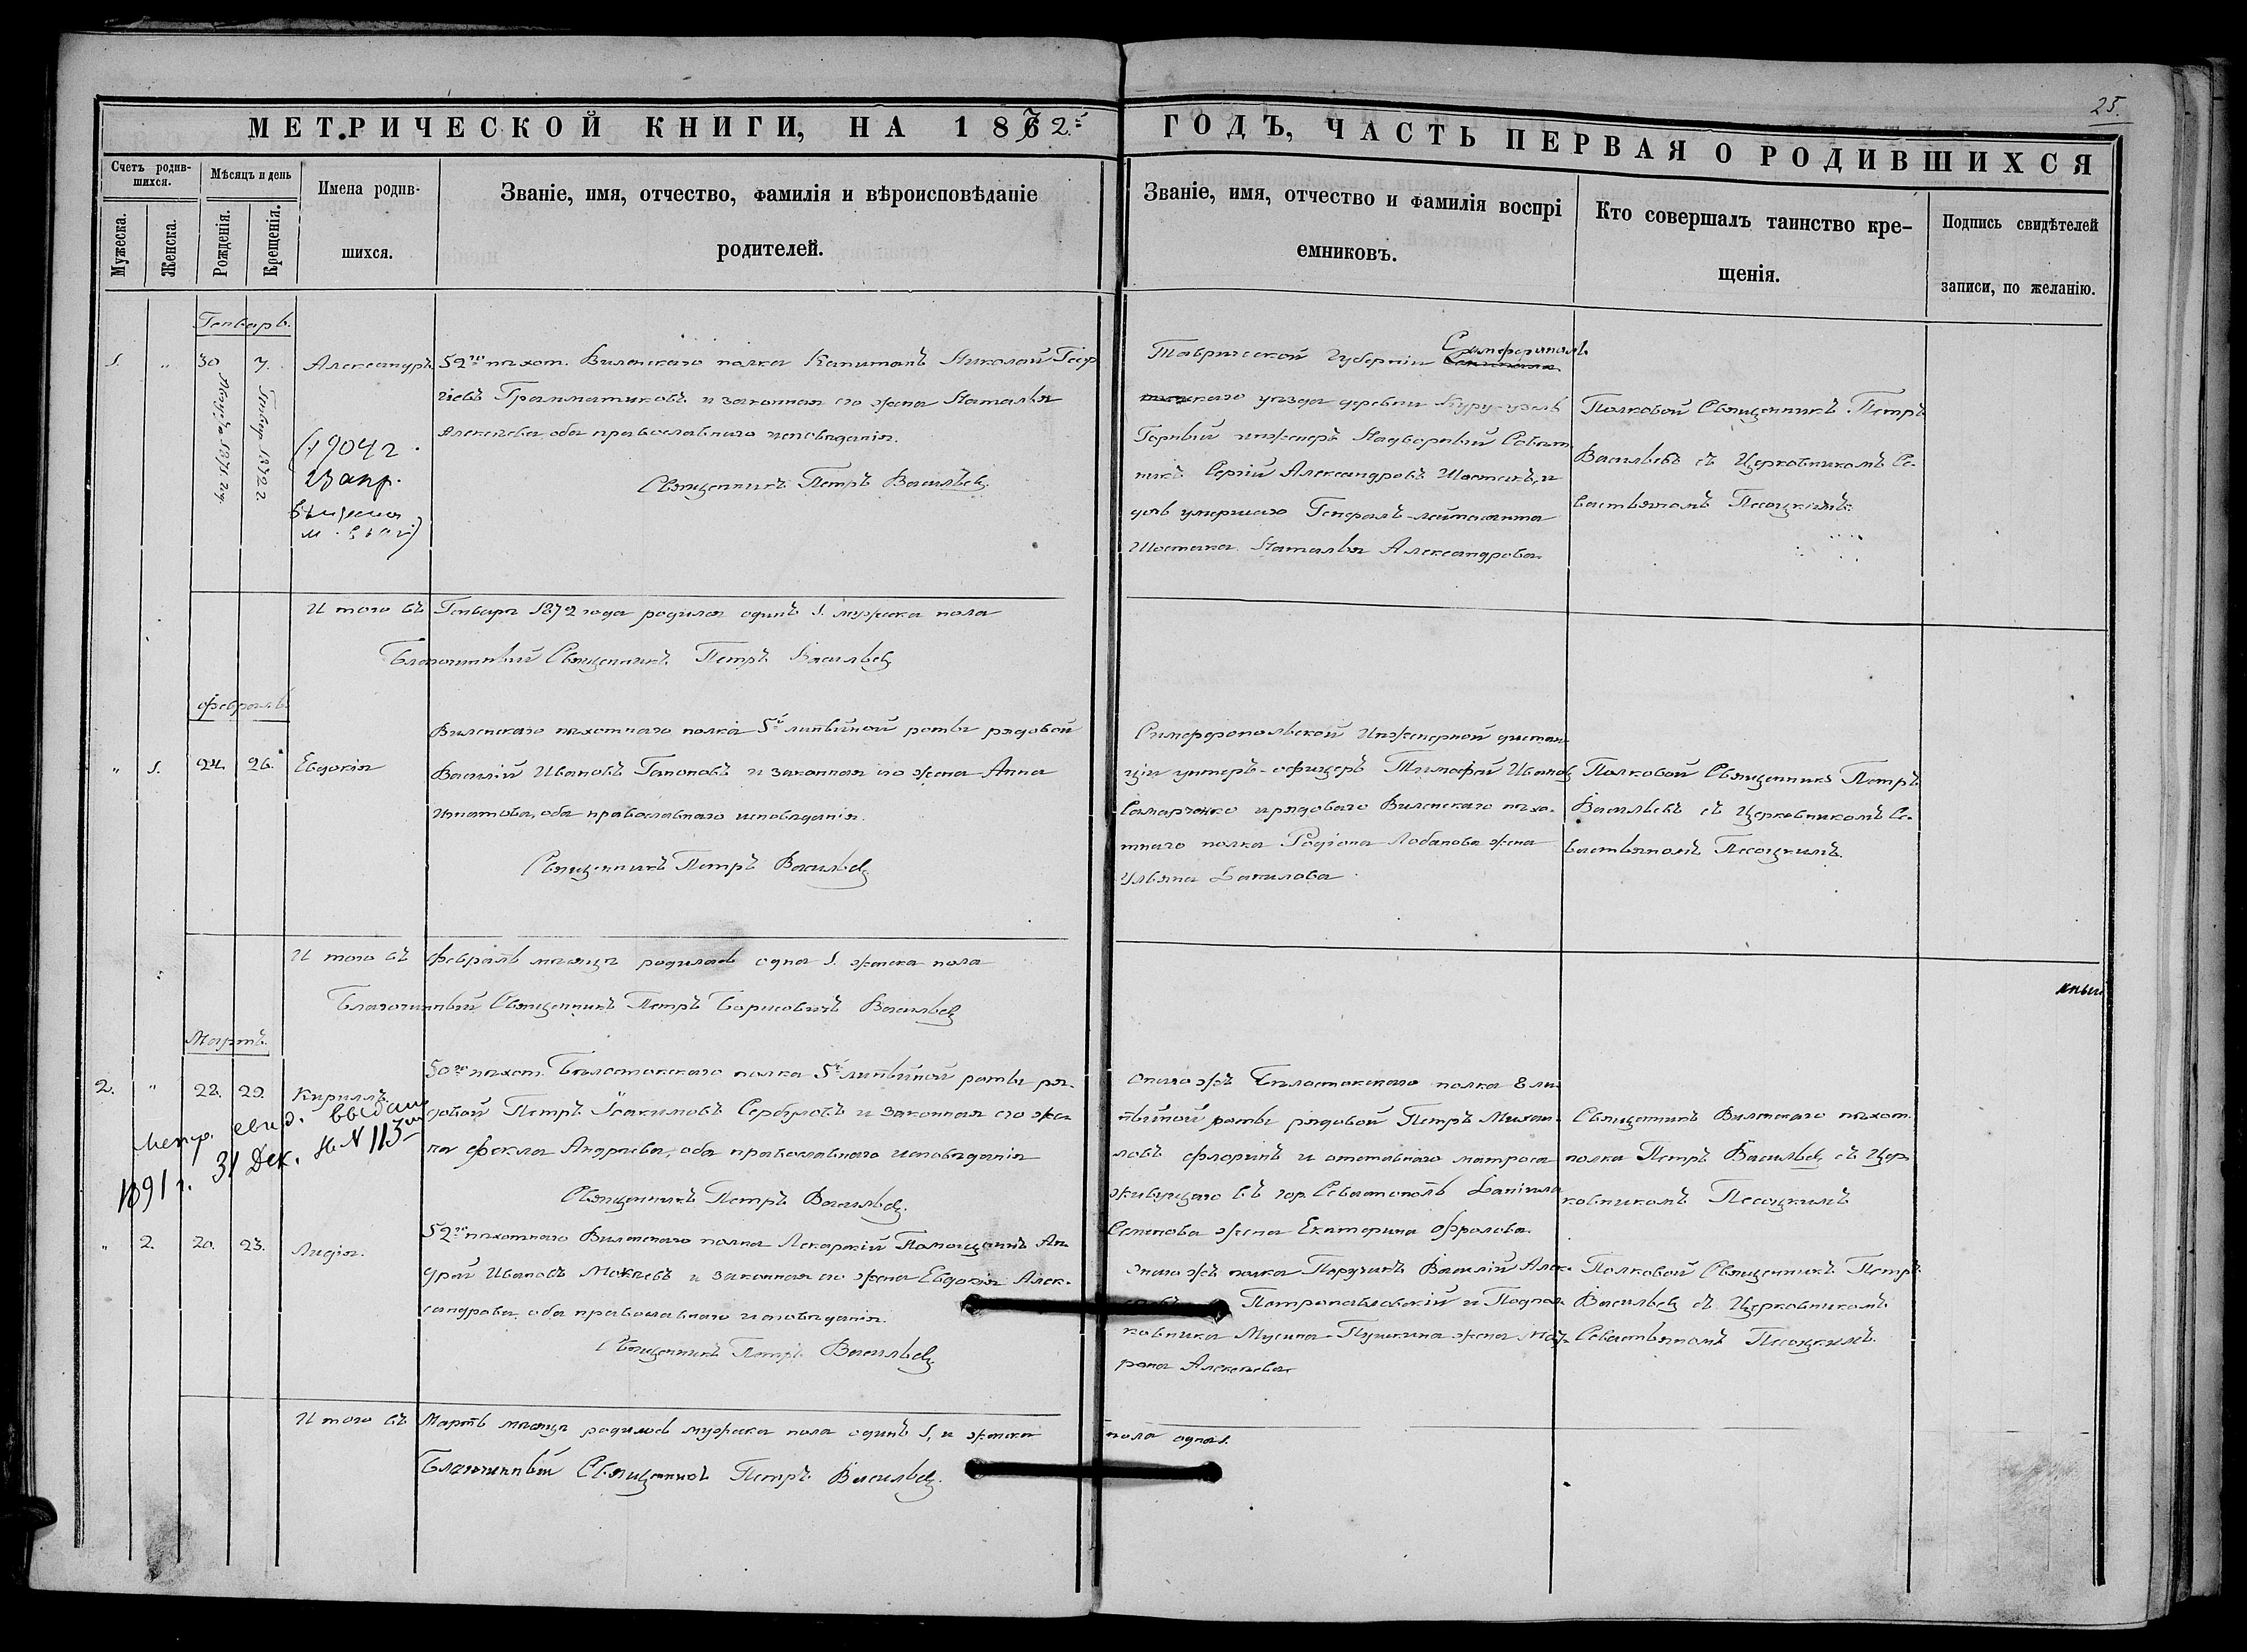 25.
МЕТРИЧЕСКОЙ КНИГИ, НА 1872.
ГОДЪ, ЧАСТЬ ПЕРВАЯ О РОДИВШИХСЯ
Счетъ родив-
шихся.
Мужеска.
Женска.
Мѣсяцъ и день
Рожденія.
Крещенія.
Имена родив-
шихся.
Званіе, имя, отчество, фамилія и вѣроисповѣданіе
родителей.
Званіе, имя, отчество и фамилія воспрі
емниковъ.
Кто совершалъ таинство кре-
щенія.
Подпись свидѣтелей
записи, по желанію.
Генварь.
1. „ 30 7. Александръ
Генвар 1872 г
(1904 г.
52го пѣхот. Виленскаго полка Капитанъ Николай Геор
гіевъ Грамматиковъ и законная его жена Наталья
Алексѣева, оба православнаго исповѣданія.
Священникъ Петръ Васильевъ
Таврической Губерніи Симферополь
скаго уѣзда деревни
Горный инженеръ Надворный Совѣт
никъ Сергій Александровъ Шостакъ, и
дочь умершаго Генералъ-лейтенанта
Шостака Наталья Александрова.
Полковой Священникъ Петръ
Васильевъ съ Церковникомъ Се-
вастьяномъ Песоцкимъ.
И того въ Генварѣ 1872 года родился одинъ 1. мужеска пола
Благочинный Священникъ Петръ Васильевъ
Февраль.
„ 1. 24. 26. Евдокія
Виленскаго пѣхотнаго полка 5й линѣйной роты рядовой
Василій Ивановъ Гапоновъ и законная его жена Анна
Игнатова, оба православнаго исповѣданія.
Священникъ Петръ Васильевъ
Симферопольской Инженерной дистан
ціи унтеръ-офицеръ Тимофей Ивановъ
и рядоваго Виленскаго пѣхо-
тнаго полка Родіона Лобанова жена
Ульяна Данилова
Полковой Священникъ Петръ
Васильевъ съ Церковникомъ Се-
вастьяномъ Песоцкимъ.
И того въ Февралѣ мѣсяцѣ родилась одна 1. женска пола
Благочинный Священникъ Петръ Борисовичъ Васильевъ
Мартъ.
2. „ 22. 29. Кириллъ
Метр. свид. выдано
1891 г. 31 Дек. за N 113
50го пѣхот. Бѣлостокскаго полка 5й линѣйной роты ря-
довой Петръ Іоакимовъ Сербуловъ и законная его же-
на Фекла Андреева, оба православнаго исповѣданія
Священникъ Петръ Васильевъ.
Онаго жъ Бѣлостокскаго полка 8 ли-
нѣйной роты рядовой Петръ Михаи-
ловъ Флоринъ и отставнаго матроса
живущаго въ гор. Севастополѣ Даніила
Семенова жена Екатерина Фролова.
Священникъ Виленскаго пѣхот.
полка Петръ Васильевъ съ Цер
ковникомъ Песоцкимъ
„ 2. 20. 23. Лидія.
52го пѣхотнаго Виленскаго полка Лекарскій Помощникъ Ан-
дрей Ивановъ Мокѣевъ и законная его жена Евдокія Алек-
сандрова, оба православнаго исповѣданія.
Священникъ Петръ Васильевъ
Онаго жъ полка Поручикъ Василій Алек-
Петропавловскій и Подпол-
ковника Мусина-Пушкина жена
Алексѣева
Полковой Священникъ Петръ
Васильевъ съ Церковникомъ
Севастьяномъ Песоцкимъ.
И того въ Мартѣ мѣсяцѣ родилось мужска пола одинъ 1, и женска
пола одна 1.
Благочинный Священникъ Петръ Васильевъ.